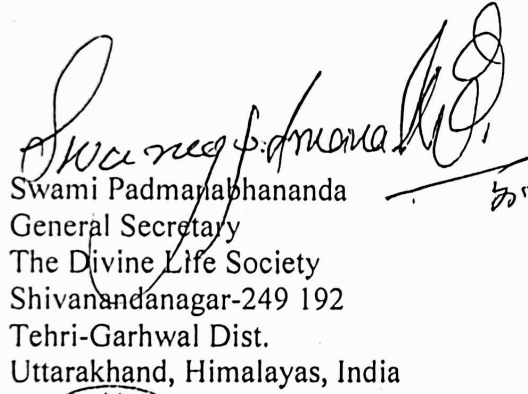 Swami
Swami Padmanabhananda
General Secretary
The Divine Life Society
Shivanandanagar-249 192
Tehri-Garhwal Dist.
Uttarakhand, Himalayas, India